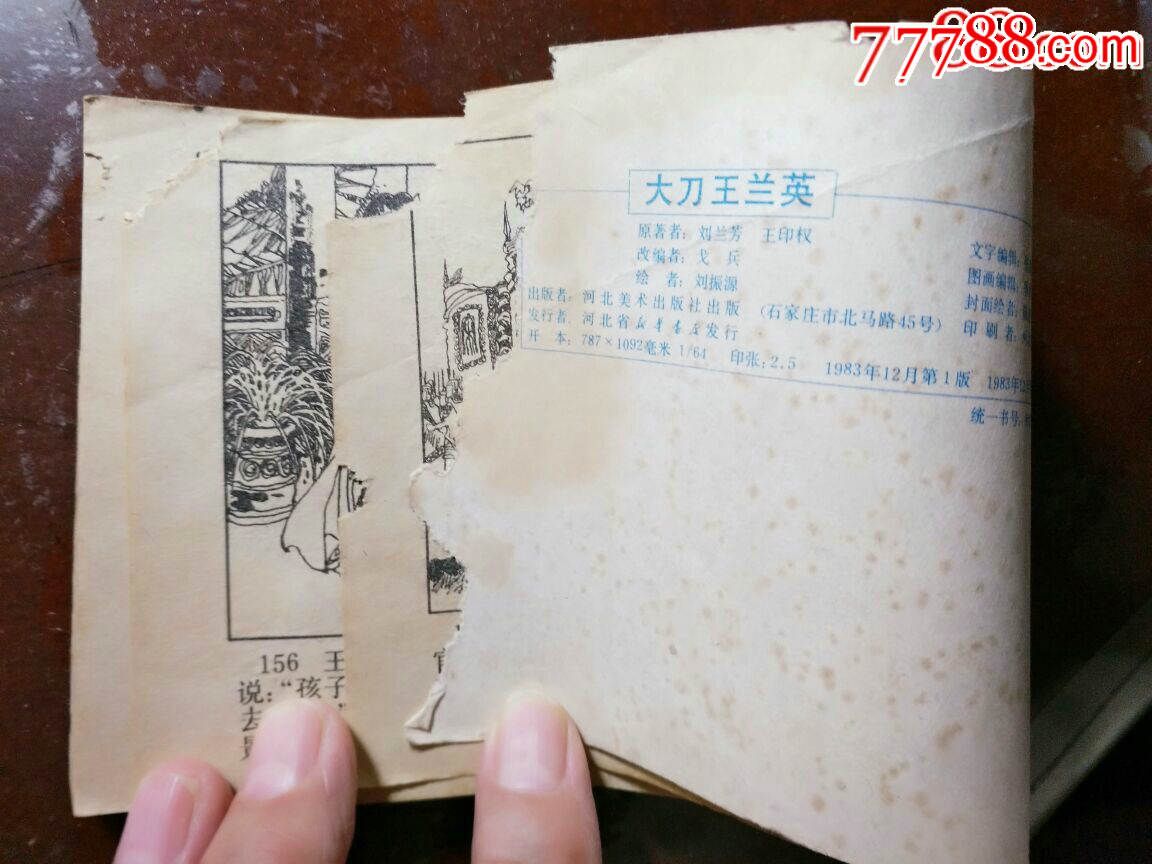 77788.com
大刀王兰英
原著者：刘兰芳　王印权
改编者：戈　兵
绘　者：刘振源
出版者：河北美术出版社出版
（石家庄市北马路45号）
发行者：河北省新华书店发行
开　本：787×1092毫米 1/64　印张：2.5　1983年12月第1版　1983年
文字编辑：
图画编辑：
封面绘者：
印刷者：
统一书号：
156　王
说：“孩子
去